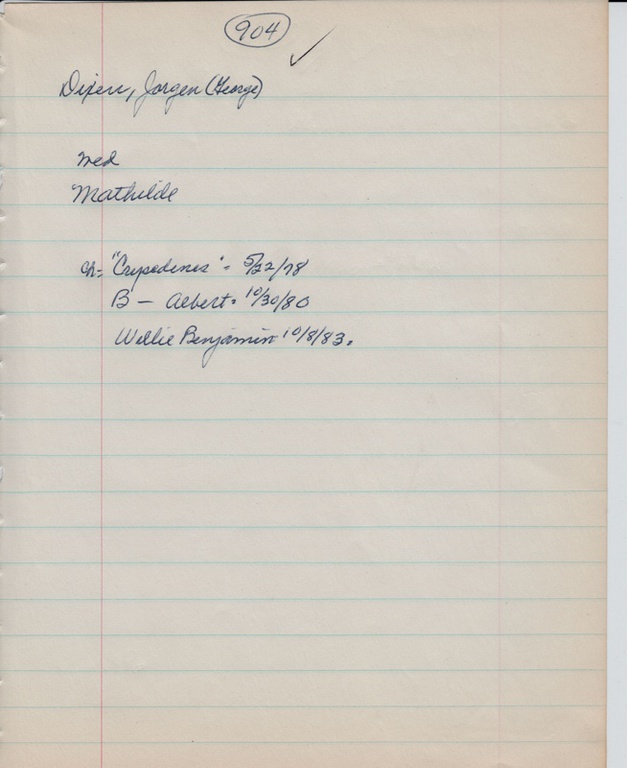 904 ✓
Dixen, Jorgen (George)
wed
Mathilde
ch = "Crepedenes" = 5/22/78
B — Albert = 10/30/80
Willie Benjamin 10/8/83.